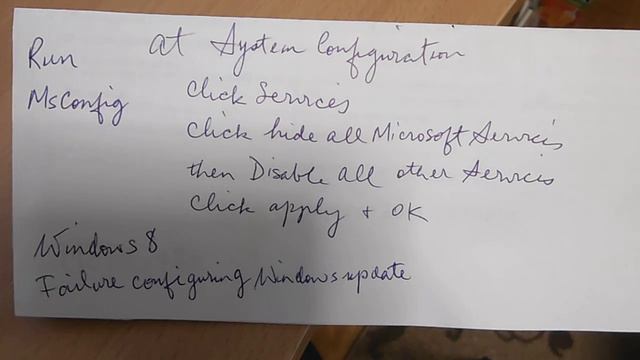 Run
MsConfig
at System Configuration
Click Services
Click hide all Microsoft Services
then Disable all other Services
Click apply + OK
Windows 8
Failure configuring Windows update